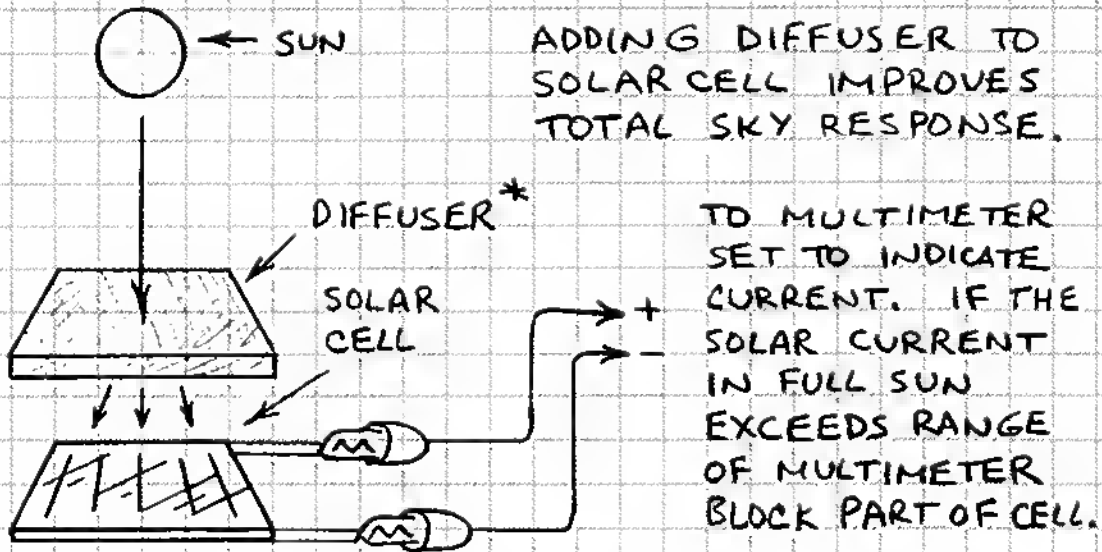 SUN
ADDING DIFFUSER TO
SOLAR CELL IMPROVES
TOTAL SKY RESPONSE.
DIFFUSER*
SOLAR
CELL
+
-
TO MULTIMETER
SET TO INDICATE
CURRENT. IF THE
SOLAR CURRENT
IN FULL SUN
EXCEEDS RANGE
OF MULTIMETER
BLOCK PART OF CELL.